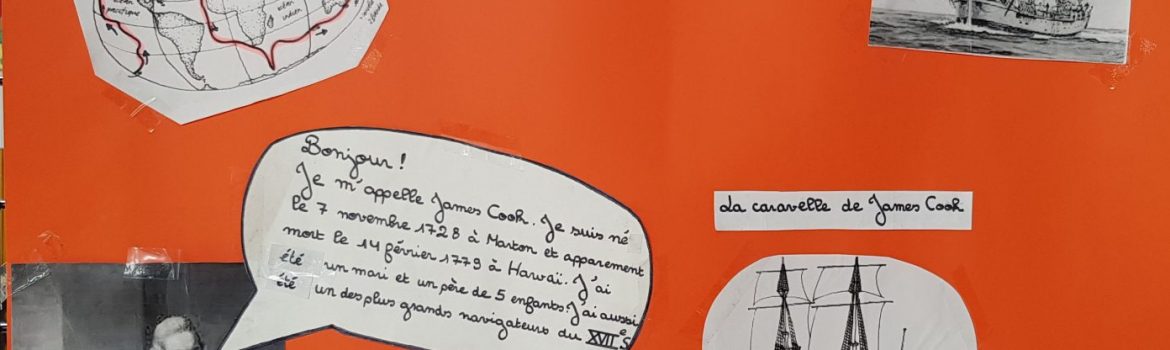 océan
indien
Bonjour !
Je m'appelle James Cook. Je suis né
le 7 novembre 1728 à Marton et apparement
mort le 14 février 1779 à Hawaï. J'ai
été un mari et un père de 5 enfants. J'ai aussi
été un des plus grands navigateurs du XVIIe S
La caravelle de James Cook